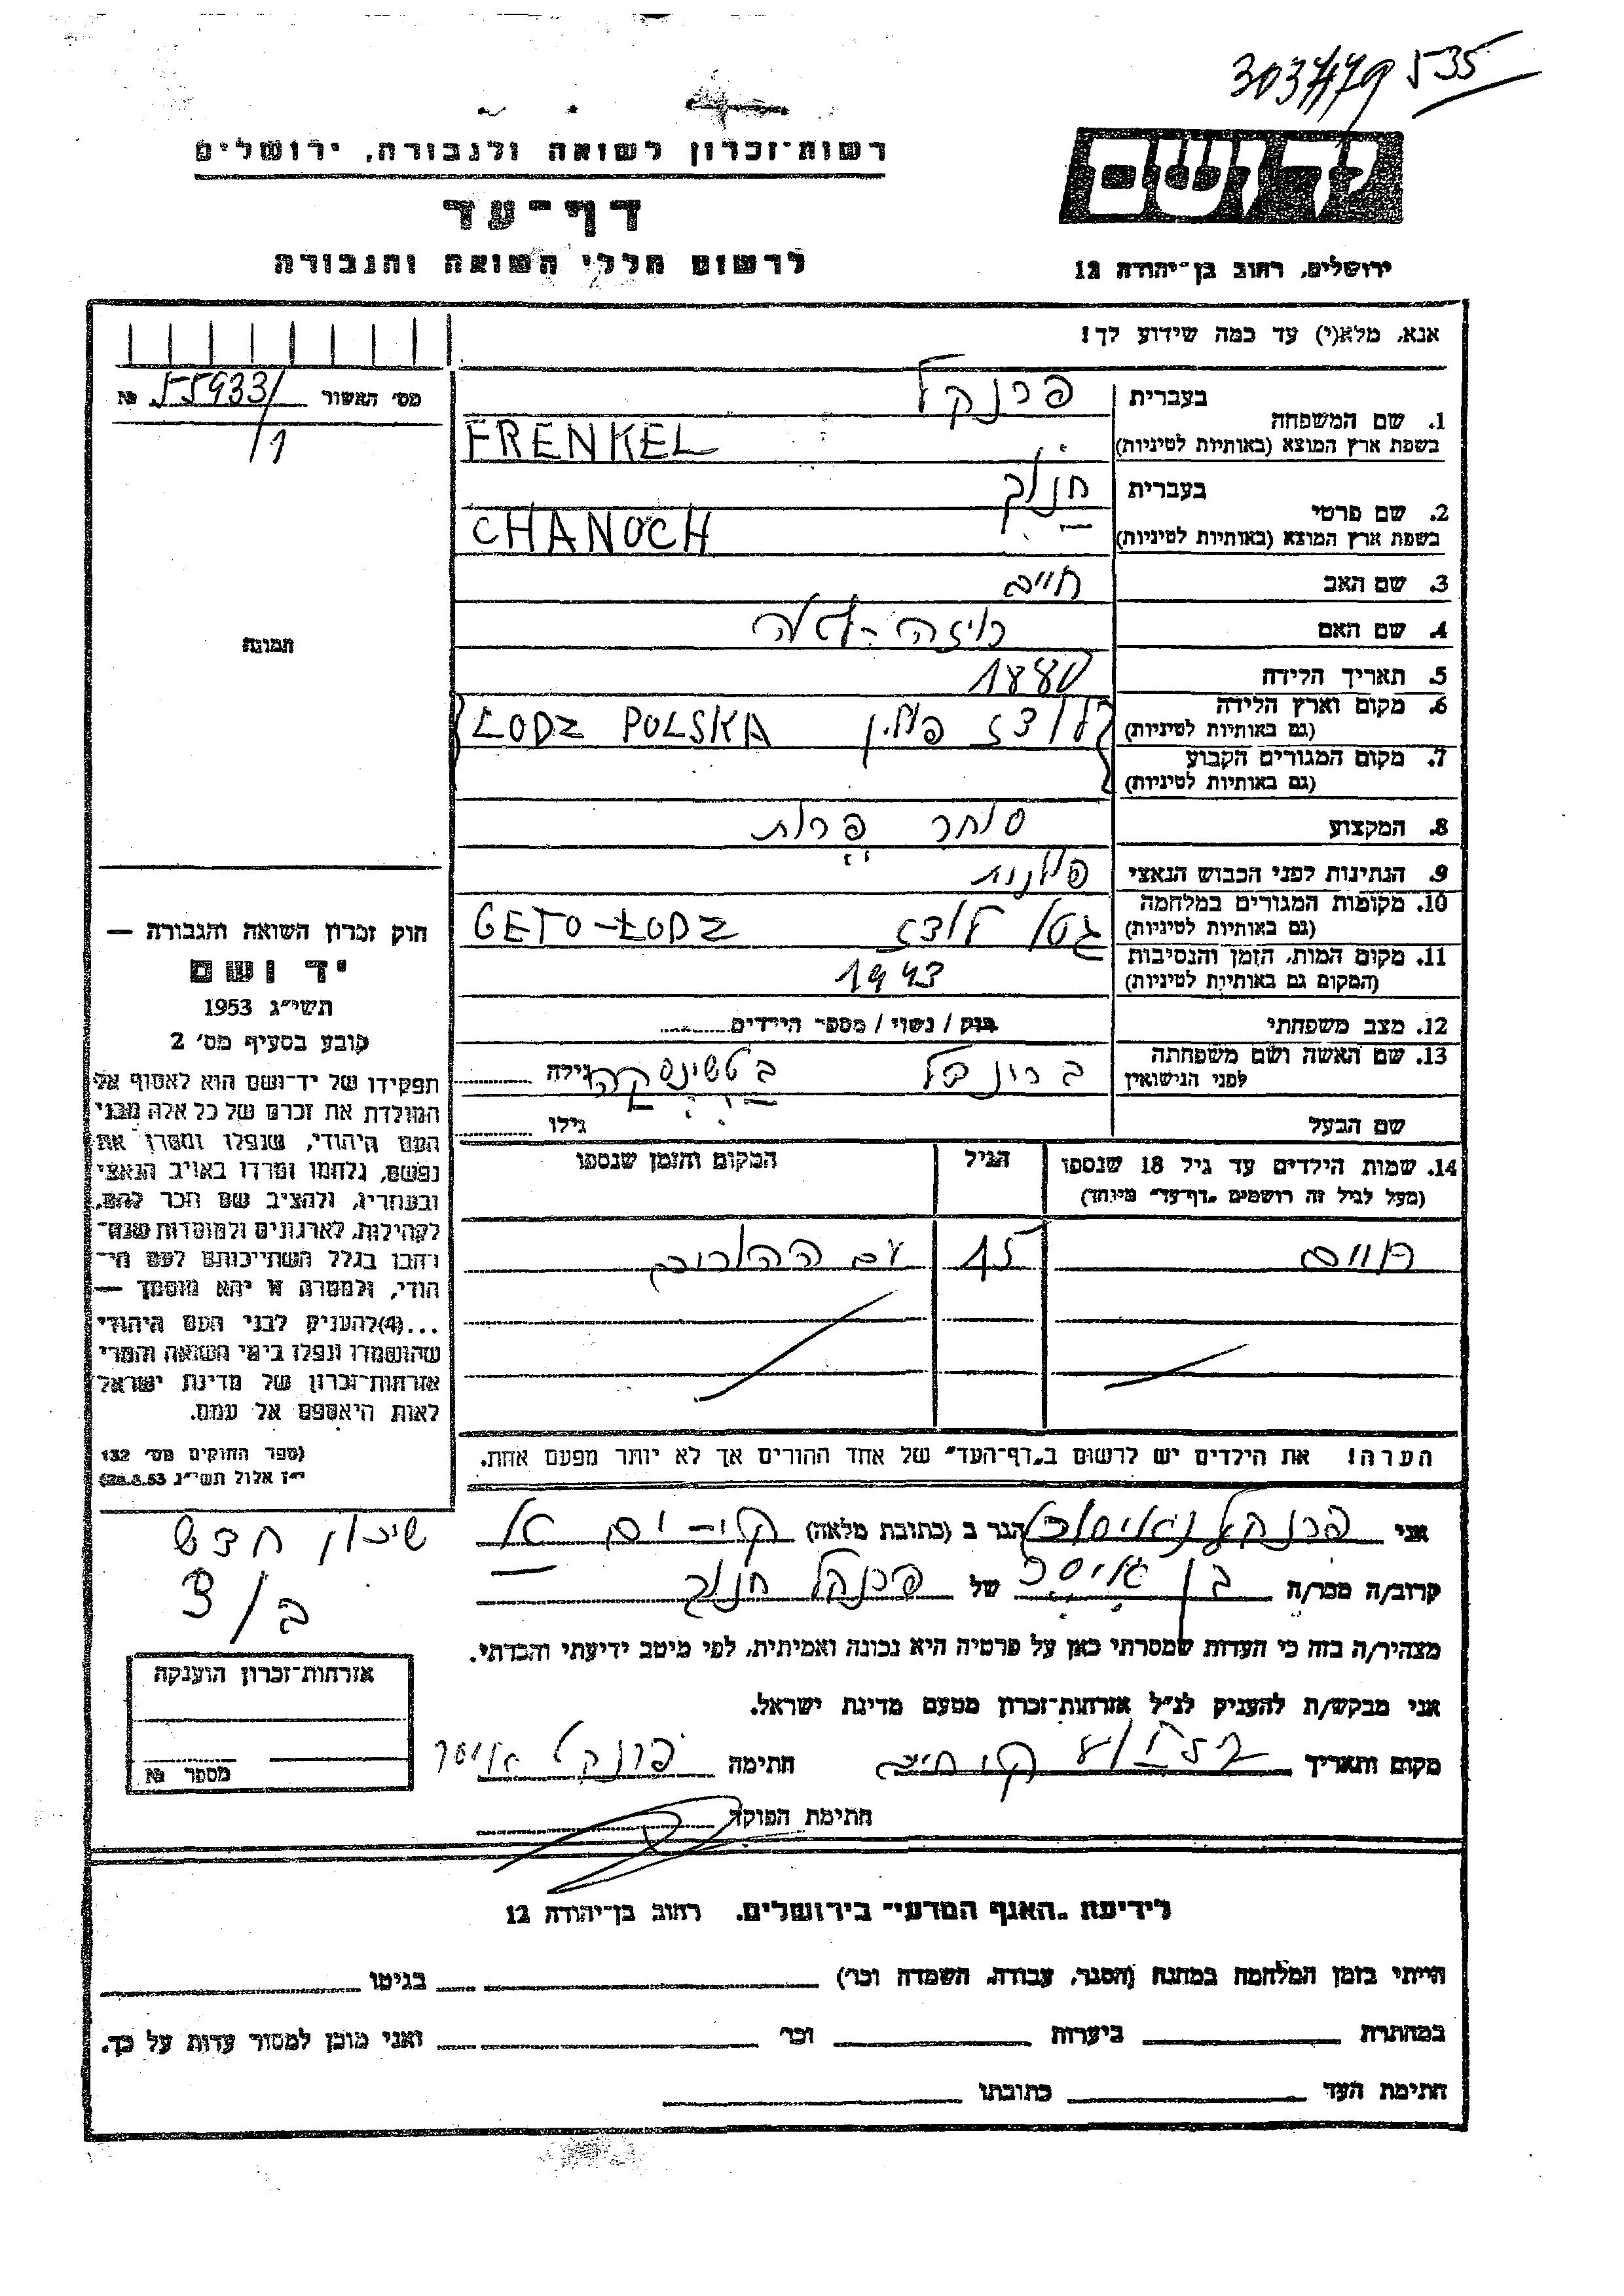 3037/79 535
רשות־זכרון לשואה ולגבורה, ירושלים
יד ושם
דף־עד
לרשום חללי השואה והגבורה
ירושלים, רחוב בן־יהודה 12
אנא, מלא(י) עד כמה שידוע לך!
מס׳ האשור 55933/ №
/1
בעברית פרנקל
1. שם המשפחה
בשפת ארץ המוצא (באותיות לטיניות) FRENKEL
בעברית חנוך
2. שם פרטי
בשפת ארץ המוצא (באותיות לטיניות) CHANOCH
3. שם האב חיים
4. שם האם
תמונה
5. תאריך הלידה 1880
6. מקום וארץ הלידה
(גם באותיות לטיניות) לודז פולין ŁODZ POLSKA
7. מקום המגורים הקבוע
(גם באותיות לטיניות)
8. המקצוע סוחר פרות
9. הנתינות לפני הכבוש הנאצי פולנית
10. מקומות המגורים במלחמה
(גם באותיות לטיניות) גטו לודז GETO-ŁODZ
11. מקום המות, הזמן והנסיבות
(המקום גם באותיות לטיניות) 1943
12. מצב משפחתי רווק / נשוי / מספר הילדים
13. שם האשה ושם משפחתה
לפני הנישואין גילה
שם הבעל גילו
חוק זכרון השואה והגבורה —
יד ושם
תשי״ג 1953
קובע בסעיף מס׳ 2
תפקידו של יד־ושם הוא לאסוף אל
המולדת את זכרם של כל אלה מבני
העם היהודי, שנפלו ומסרו את
נפשם, נלחמו ומרדו באויב הנאצי
ובעוזריו, ולהציב שם וזכר להם,
לקהילות, לארגונים ולמוסדות שנח־
רבו בגלל השתייכותם לעם הי־
הודי, ולמטרה זו יהא מוסמך —
...(4) להעניק לבני העם היהודי
שהושמדו ונפלו בימי השואה והמרי
אזרחות־זכרון של מדינת ישראל
לאות היאספם אל עמם.
(ספר החוקים מס׳ 132
י״ז אלול תשי״ג 28.8.53)
14. שמות הילדים עד גיל 18 שנספו הגיל המקום והזמן שנספו
(מעל לגיל זה רושמים „דף־עד״ מיוחד)
חיים 15 עם ההורים
הערה! את הילדים יש לרשום ב„דף־העד״ של אחד ההורים אך לא יותר מפעם אחת.
אני פרנקל הגר ב (כתובת מלאה) שיכון חדש
קרוב/ה מכר/ה בן של פרנקל חנוך ב/3
מצהיר/ה בזה כי העדות שמסרתי כאן על פרטיה היא נכונה ואמיתית, לפי מיטב ידיעתי והכרתי.
אני מבקש/ת להעניק לנ״ל אזרחות־זכרון מטעם מדינת ישראל.
מקום ותאריך חתימה פרנקל איסר
חתימת הפוקד
אזרחות־זכרון הוענקה
מספר №
לידיעת „האגף המדעי״ בירושלים, רחוב בן־יהודה 12
הייתי בזמן המלחמה במחנה (הסגר, עבודה, השמדה וכו׳) בגיטו
במחתרת ביערות וכו׳ ואני מוכן למסור עדות על כך.
חתימת העד כתובתו